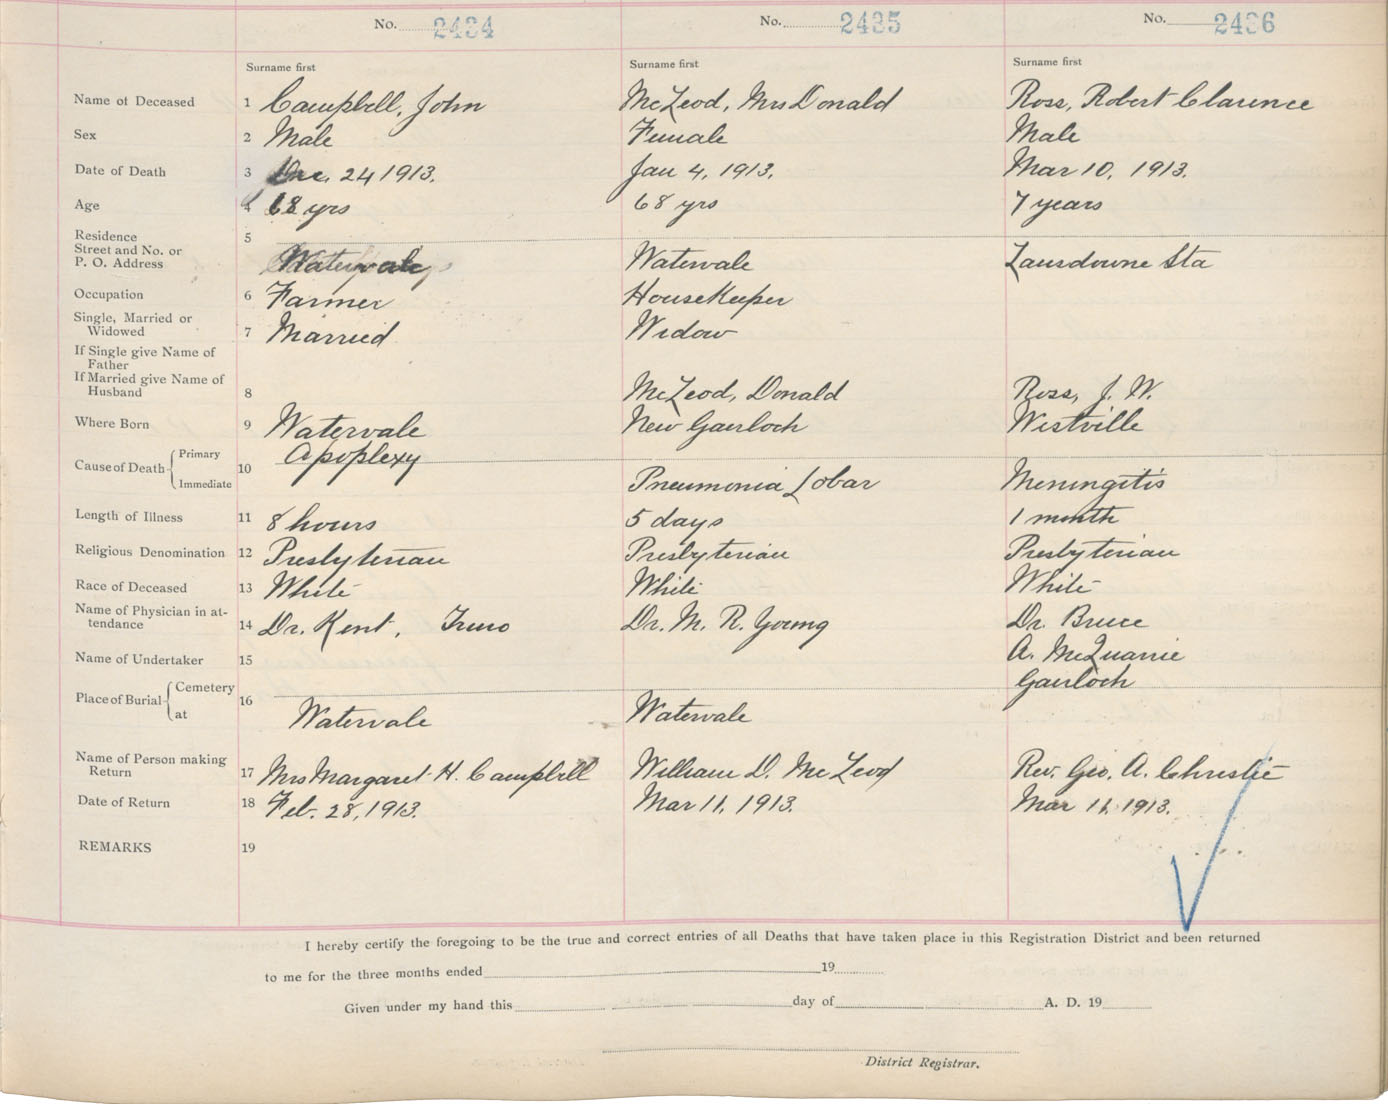 No. 2434 No. 2435 No. 2436
Surname first Surname first Surname first
Name of Deceased 1 Campbell, John McLeod, Mrs Donald Ross, Robert Clarence
Sex 2 Male Female Male
Date of Death 3 Dec. 24 1913. Jan 4, 1913. Mar 10, 1913.
Age 4 68 yrs 68 yrs 7 years
Residence
Street and No. or
P. O. Address 5 Watervale Watervale Lansdowne Sta
Occupation 6 Farmer HouseKeeper
Single, Married or
Widowed 7 Married Widow
If Single give Name of
Father
If Married give Name of
Husband 8 McLeod, Donald Ross, J. W.
Where Born 9 Watervale New Gairloch Westville
Cause of Death Primary 10 Apoplexy
Immediate Pneumonia Lobar Meningitis
Length of Illness 11 8 hours 5 days 1 month
Religious Denomination 12 Presbyterian Presbyterian Presbyterian
Race of Deceased 13 White White White
Name of Physician in at-
tendance 14 Dr. Kent, Truro Dr. M. R. Young Dr. Bruce
Name of Undertaker 15 A. McQuarrie
Place of Burial Cemetery 16 Gairloch
at Watervale Watervale
Name of Person making
Return 17 Mrs Margaret H. Campbell William D. McLeod Rev. Geo. A. Christie
Date of Return 18 Feb. 28, 1913. Mar 11, 1913. Mar 11, 1913.
REMARKS 19
I hereby certify the foregoing to be the true and correct entries of all Deaths that have taken place in this Registration District and been returned
to me for the three months ended 19
Given under my hand this day of A. D. 19
District Registrar.